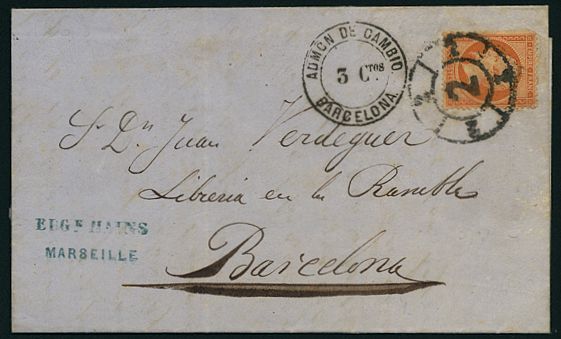 ADMON DE CAMBIO.
3 Ctos
BARCELONA.
2
Sr Dn Juan Verdeguer
Libreria en la Rambla
Barcelona
EUGE HAINS
MARSEILLE